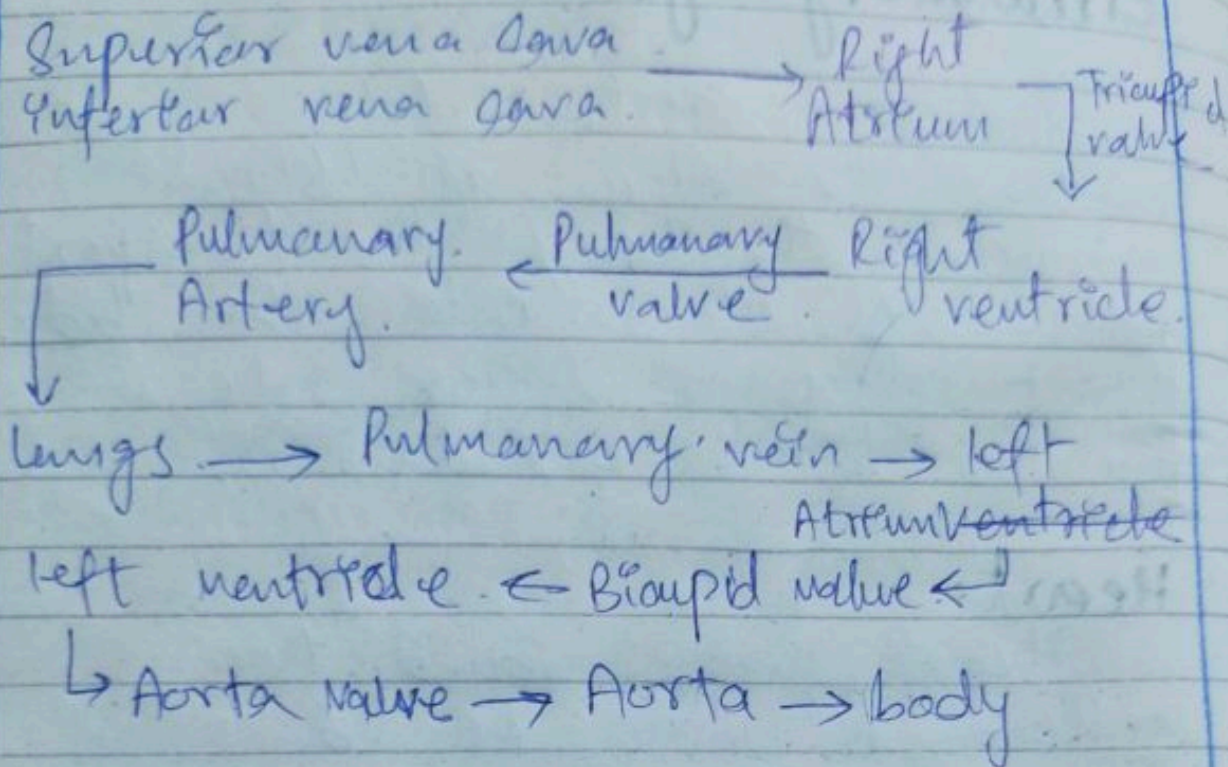 Superior vena cava
Inferior vena cava. → Right Atrium
Tricuspid valve
Pulmonary Artery. ← Pulmonary valve. Right ventricle.
lungs → Pulmonary vein → left
Atrium ventricle
left ventricle ← Bicupid valve ↵
↳ Aorta valve → Aorta → body